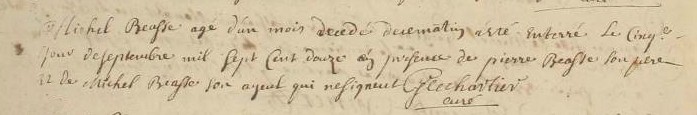 Michel Beasse agé d'un mois decedé decematin a été enterré le cinqe
jour deseptembre mil sept cent douze en presence de pierre Beasse son pere
et de Michel Beasse son ayeul qui nesignent G lecharlier
curé